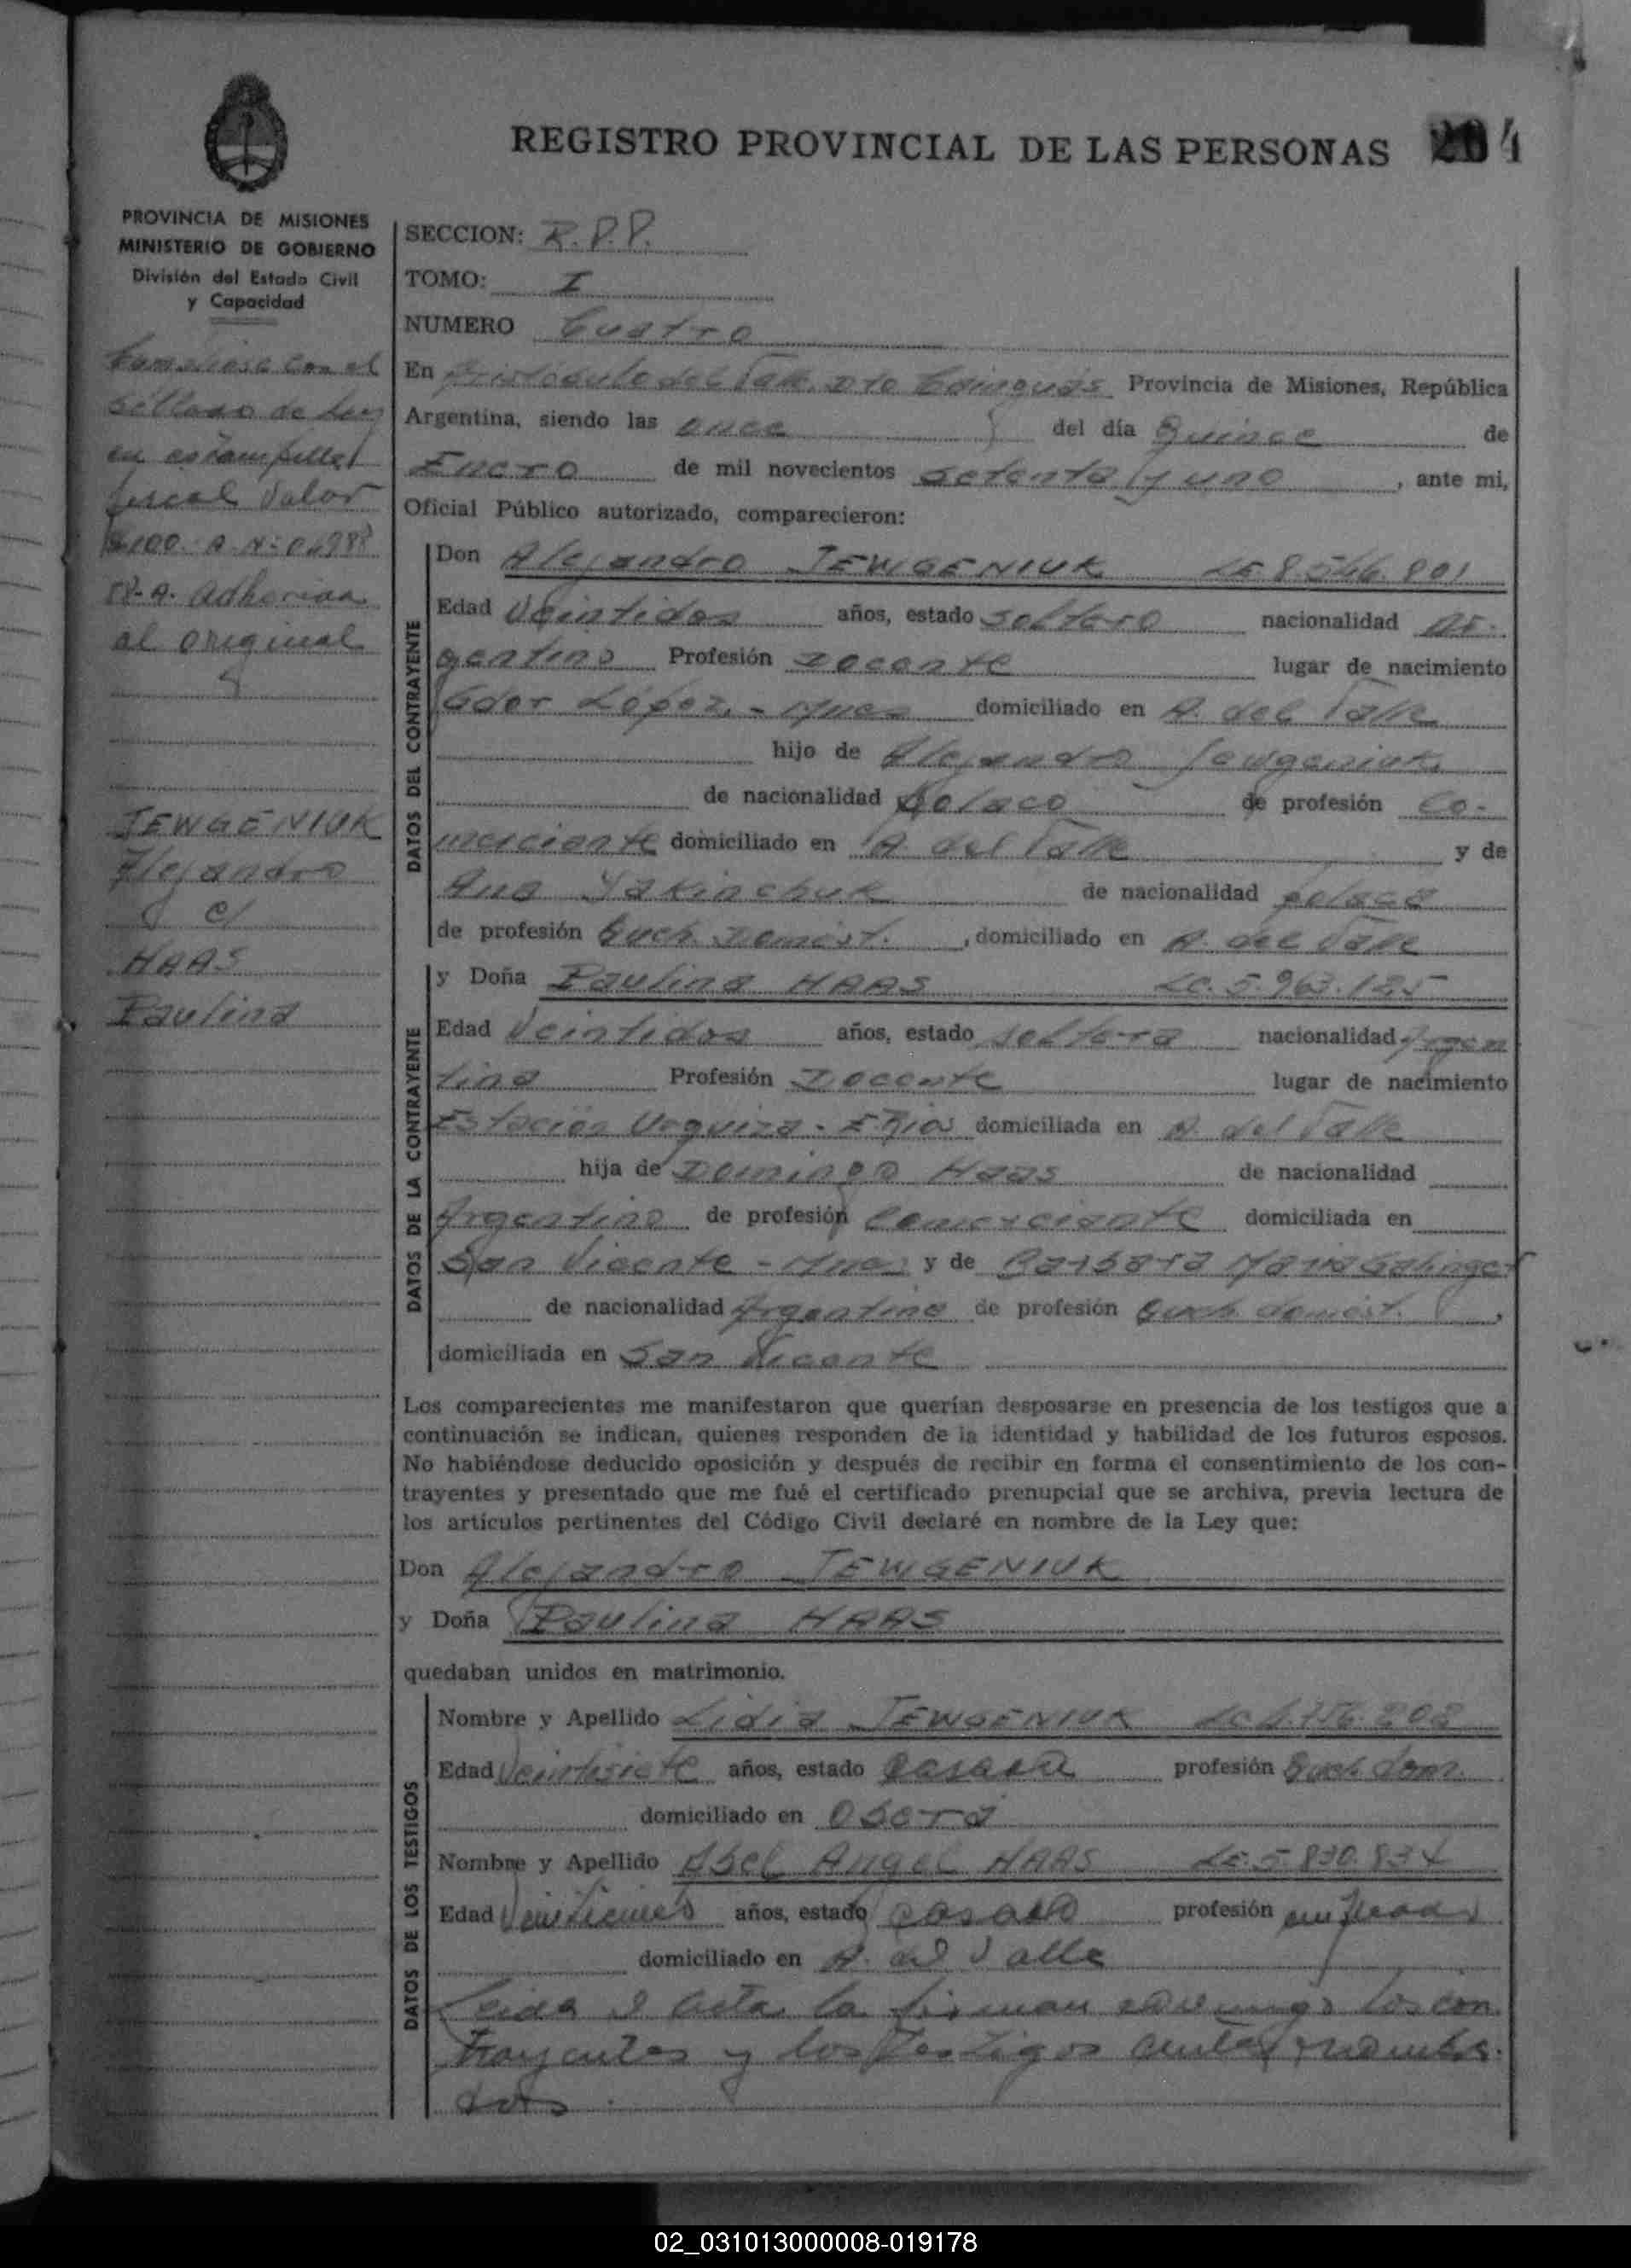 REGISTRO PROVINCIAL DE LAS PERSONAS 204
PROVINCIA DE MISIONES
MINISTERIO DE GOBIERNO
División del Estado Civil
y Capacidad
con el
sellado de Ley
en estampilla
fiscal Valor
$100
al original
JEWGENIUK
Alejandro
c/
HAAS
Paulina
SECCION: R.P.P.
TOMO: I
NUMERO Cuatro
En Aristóbulo del Valle Dto Cainguás Provincia de Misiones, República
Argentina, siendo las once del día Quince de
Enero de mil novecientos setenta y uno, ante mi,
Oficial Público autorizado, comparecieron:
DATOS DEL CONTRAYENTE
Don Alejandro JEWGENIUK LE 8.546.801
Edad Veintidos años, estado soltero nacionalidad Ar-
gentino Profesión Docente lugar de nacimiento
Gdor López - Mnes domiciliado en A. del Valle
hijo de Alejandro Jewgeniuk
de nacionalidad polaco de profesión co-
merciante domiciliado en A. del Valle y de
Ana Yakinchuk de nacionalidad polaca
de profesión Queh. Domést. , domiciliado en A. del Valle
DATOS DE LA CONTRAYENTE
y Doña Paulina HAAS LC. 5.963.125
Edad Veintidos años, estado soltera nacionalidad Argen
tina Profesión Docente lugar de nacimiento
Estación Urquiza - E. Rios domiciliada en A. del Valle
hija de Domingo Haas de nacionalidad
Argentino de profesión Comerciante domiciliada en
San Vicente - Mnes y de Barbara Maria
de nacionalidad Argentina de profesión Queh. domést. ,
domiciliada en San Vicente
Los comparecientes me manifestaron que querían desposarse en presencia de los testigos que a
continuación se indican, quienes responden de la identidad y habilidad de los futuros esposos.
No habiéndose deducido oposición y después de recibir en forma el consentimiento de los con-
trayentes y presentado que me fué el certificado prenupcial que se archiva, previa lectura de
los artículos pertinentes del Código Civil declaré en nombre de la Ley que:
Don Alejandro JEWGENIUK
y Doña Paulina HAAS
quedaban unidos en matrimonio.
DATOS DE LOS TESTIGOS
Nombre y Apellido Lidia JEWGENIUK LC
Edad Veintisiete años, estado casada profesión Queh. dom.
domiciliado en Oberá
Nombre y Apellido Abel Angel HAAS LE. 5.830.834
Edad años, estado casado profesión empleado
domiciliado en A. del Valle
Leida el acta la firman conmigo los con
trayentes y los testigos antes nombra
dos
02_031013000008-019178